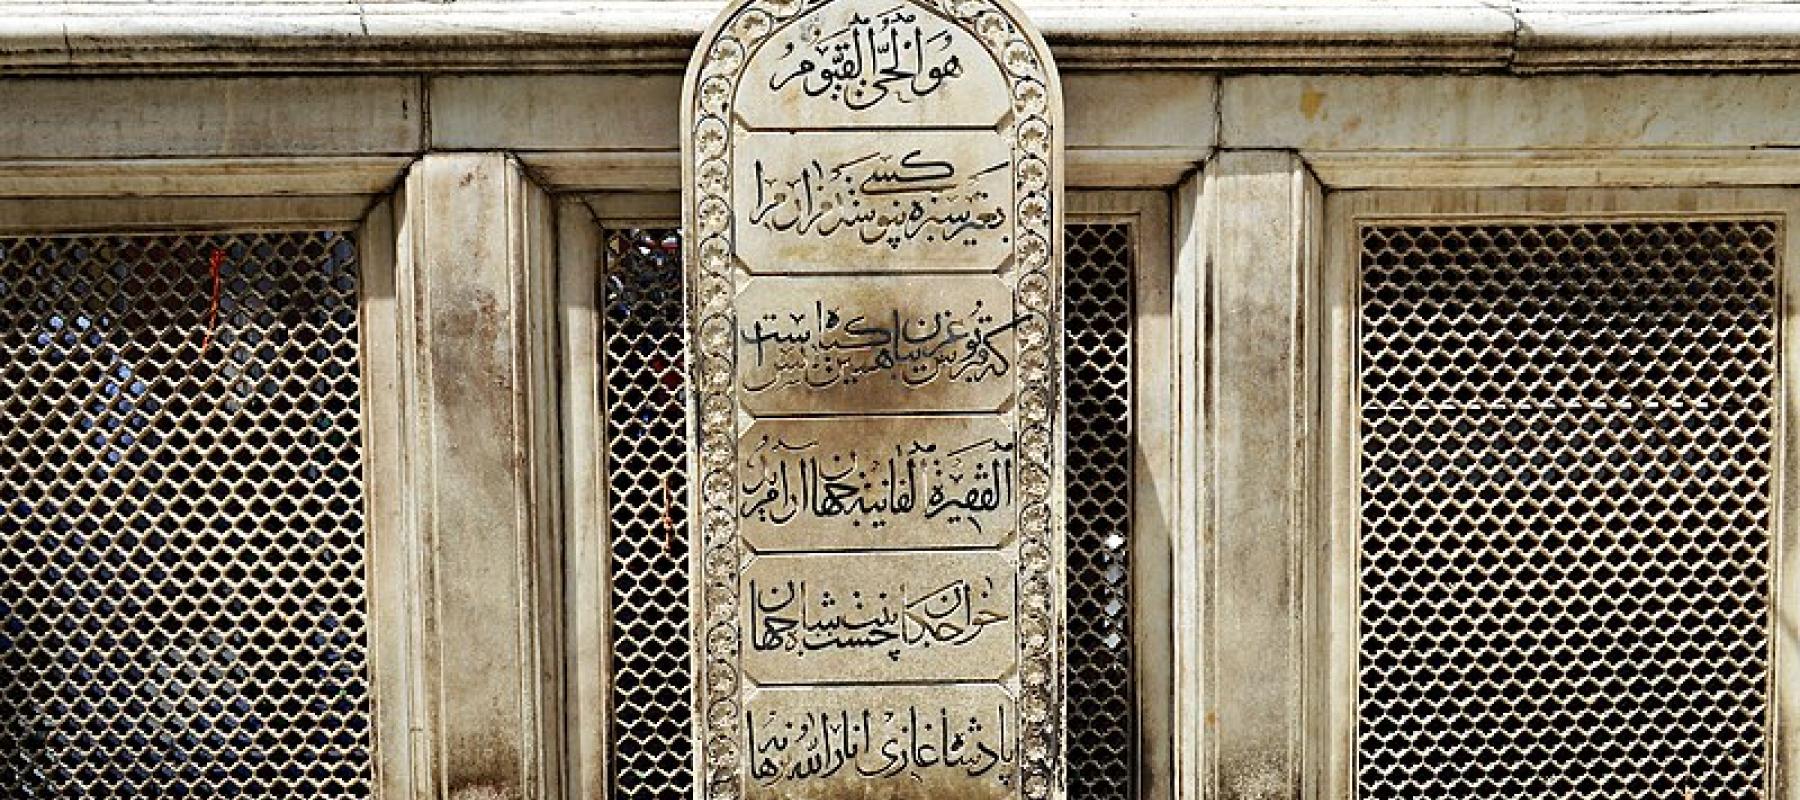 هو الحی القیوم
بغیر سبزه نپوشد کسی مزار مرا
که قبر پوش غریبان همین کیاه بس است
الفقیرة الفانیة جهان آرا مرید
خواجکان چشت بنت شاه جهان
پادشاه غازی انار الله برهانه